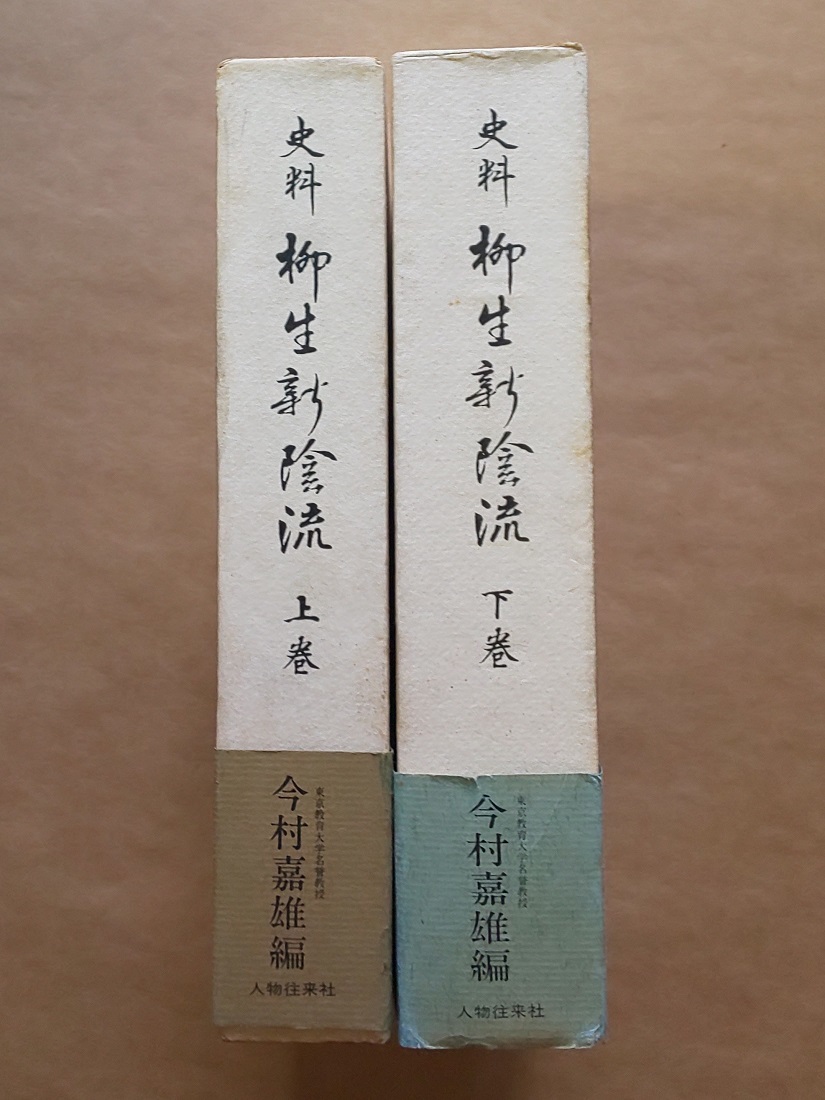 史料 柳生新陰流 上巻
東京教育大学名誉教授
今村嘉雄編
人物往来社
史料 柳生新陰流 下巻
東京教育大学名誉教授
今村嘉雄編
人物往来社